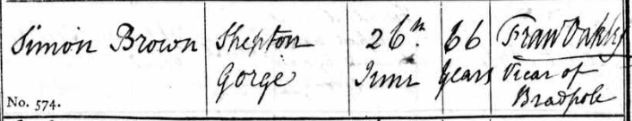 Simon Brown Shepton 26th 66 Fraw Oakley
Gorge June years Vicar of
No. 574. Bradpole